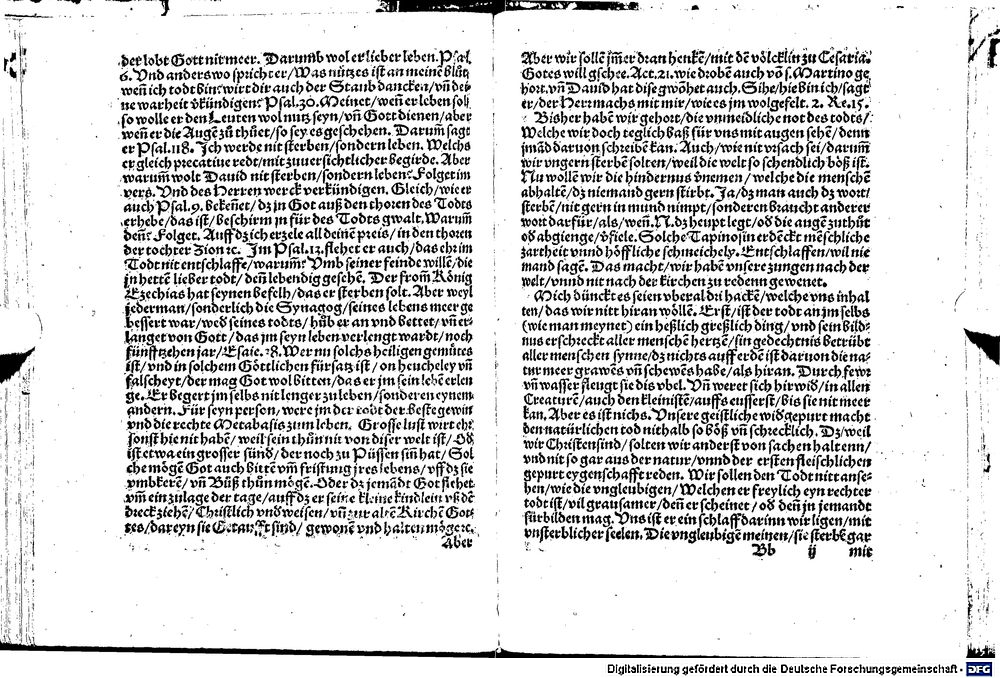 der lobt Gott nit meer. Darumb wol er lieber leben. Psal.
6. Vnd anderswo spricht er/Was nützes ist an meinē blůt
weñ ich todt bin: wirt dir auch der Staub dancken/vñ dei-
ne warheit v̈kündigen: Psal.30. Meinet/weñ er leben sol/
so wolle er den Leuten wol nutz seyn/vñ Gott dienen/aber
weñ er die Augē zů thůet/so sey es geschehen. Darum̄ sagt
er Psal.118. Ich werde nit sterben/sonder leben. Welchs
er gleich precative redt/mit zuuersichtlicher begirde. Aber
warum̄ wolt Dauid nit sterben/sondern leben: Folget im
vers. Vnd des Herren werck verkündigen. Gleich/wie er
auch Psal.9. bekeñet/dz in Got auß den thoren des Todts
erhebe/das ist/beschirm jn für des Todts gwalt. Warum̄
deñ: Folget. Auff dz ich erzele all deine preis/in den thoren
der tochter Zion ꝛc. Im Psal.12.flehet er auch/das ehr im
Todt nit entschlaffe/warum̄: Vmb seiner feinde willē/die
jn hettē lieber todt/deñ lebendig gesehē. Der from̄ König
Ezechias hat seynen befelh/das er sterben solt. Aber weyl
jederman/sonderlich die Synagog/seines lebens meer ge
bessert war/weď seines todts/hůb er an vnd bettet/vñ er-
langet von Gott/das im seyn leben verlengt wardt/noch
fünfftzehen jar/Esaie.38. Wer nu solchs heiligen gemütes
ist/vnd in solchem Göttlichen fürsatz ist/on heucheley vñ
falscheyt/der mag Got wol bitten/das er jm sein lebē erlen
ge. Er begert jm selbs nit lenger zu leben/sonderen eynem
andern. Für seyn person/were jm der todt der beste gewin
vnd die rechte Metabasis zum leben. Grosse lust wirt ehr
sonst hie nit habē/weil sein thůn nit von diser welt ist/Oď
ist etwa ein grosser sünď/der noch zu Püssen sin̄ hat/Sol
che mögē Got auch bittē vm̄ fristung jres lebens/vff dz sie
vmbkerē/vñ Bůß thůn mögē. Oder dz jemādt Got flehet
vm̄ ein zulage der tage/auff dz er seine kleine kindlein vß dē
dreck ziehē/Christlich vnd weisen/vñ zur altē Kirchē Got
tes/dar eyn sie Getaufft sind/gewonē vnd halten mögeꝛc.
Aber
Aber wir sollē jm̄er dran henkē/mit dē völcklin zu Cesaria.
Gotes will gschee. Act.21. wie drobē auch vō s. Martino ge
hort. vñ Dauid hat dise gwōhet auch. Sihe/hie bin ich/sagt
er/der Herr machs mit mir/wie es jm wolgefelt. 2. Re.15.
Bisher habē wir gehort/die vnmeidliche not des todts/
Welche wir doch teglich baß für vns mit augen sehē/denn
jmād daruon schreibē kan. Auch/wie nit vrsach sei/darum̄
wir vngern sterbē solten/weil die welt so schendlich böß ist.
Nu wollē wir die hindernus v̈nemen/welche die menschē
abhaltē/dz niemand gern stirbt. Ja/dz man auch dz wort/
sterbē/nit gern in mund nimpt/sonderen braucht anderer
wort darfür/als/weñ. N. dz heupt legt/oď die augē zuthůt
oď abgienge/v̈fiele. Solche Tapinosin erdēckt mēschliche
zartheit vnnd höffliche schmeichely. Entschlaffen/wil nie
mand sagē. Das macht/wir habē vnsere zungen nach der
welt/vnnd nit nach der kirchen zu redenn gewenet.
Mich dünckt es seien vberal dri hackē/welche vns inhal
ten/das wir nitt hiran wöllē. Erst/ist der todt an jm selbs
(wie man meynet) ein heßlich greßlich ding/vnd sein bild-
nus erschreckt aller menschē hertzē/sin gedechtnis betrübt
aller menschen synne/dz nichts auff erdē ist daruon die na-
tur meer grawēs vñ schewēs habe/als hiran. Durch fewr
vñ wasser fleugt sie dis vbel. Vñ weret sich hirwiď/in allen
Creaturē/auch den kleinistē/auffs eusserst/bis sie nit meer
kan. Aber es ist nichs. Vnsere geistliche wiďgepurt macht
den natürlichen tod nit halb so böß vñ schrecklich. Dz/weil
wir Christen sind/solten wir anderst von sachen halt enn/
vnd nit so gar aus der natur/vnnd der ersten fleischlichen
gepurt eygenschafft reden. Wir sollen den Todt nitt anse-
hen/wie die vngleubigen/Welchen er freylich eyn rechter
todt ist/vil grausamer/deñ er scheinet/oď deñ jn jemandt
fürbilden mag. Vns ist er ein schlaff darinn wir ligen/mit
vnsterblicher seelen. Die vngleubigē meinen/sie sterbē gar
Bb ij mit
Digitalisierung gefördert durch die Deutsche Forschungsgemeinschaft - DFG